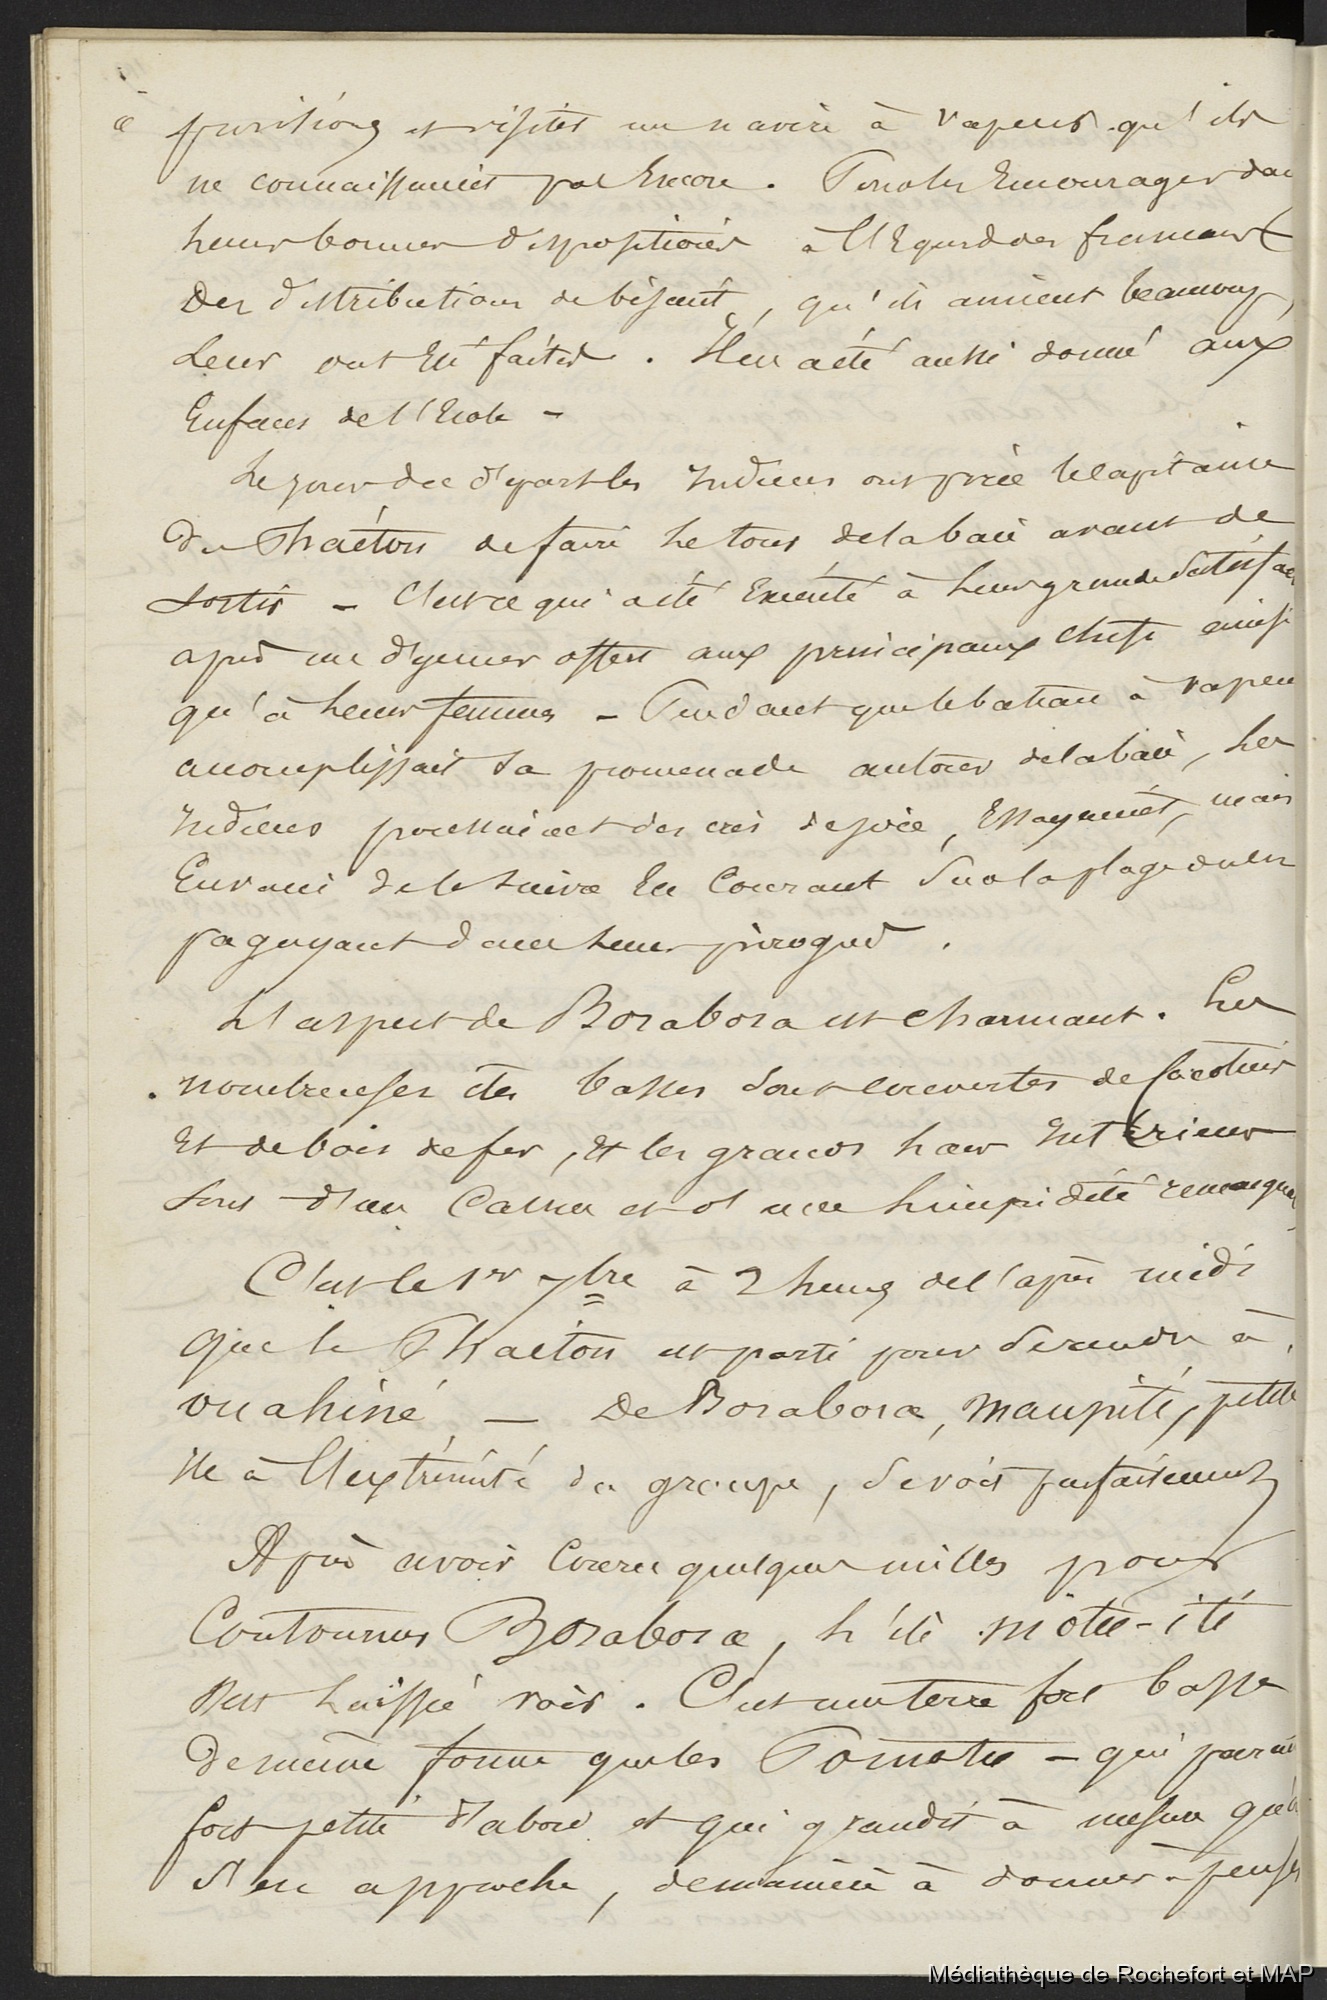 à provisions et visiter un navire à vapeur qu'ils
ne connaissaient pas Encore. Pour les Encourager dan
leurs bonnes dispositions à l'Egard des français
Des distributions de biscuit, qu'ils aiment beaucoup,
leur ont Eté faites. Il en a été aussi donné aux
Enfans de l'Ecole -
Le jour du départ les Indiens ont prié le Capitaine
du Phaéton de faire le tour de la baie avant de
sortir - C'est ce qui a été Exécuté à leur grande Satisfac
après un déjeuner offert aux principaux Chefs ainsi
qu'à leurs femmes - Pendant que le bateau à vapeu
accomplissait sa promenade autour de la baie, les
Indiens poussaient des cris de joie, Essayaient, mais
En vain de le suivre En Courant Sur la plage ou en
pagayant dans leurs pirogues.
L'aspect de Borabora est charmant. Les
nombreuses îles basses sont couvertes de Cocotiers
Et de bois de fer, Et les grands lacs Intérieurs
sont d'un Calme et d'une limpidité remarqua
C'est le 1er 7bre à 2 heures de l'après midi
que le Phaéton est parti pour se rendre à
ouahiné - De Borabora, Maupiti, petite
île à l'Extrémité du groupe, se voit parfaitement
Après avoir Couru quelques milles pour
Contourner Borabora, l'île motu-iti
s'est laissée voir. C'est une terre fort basse
de même forme que les Pomotu - qui parait
fort petite d'abord et qui grandit à mesure qu'on
s'en approche, de manière à donner à penser
Médiathèque de Rochefort et MAP